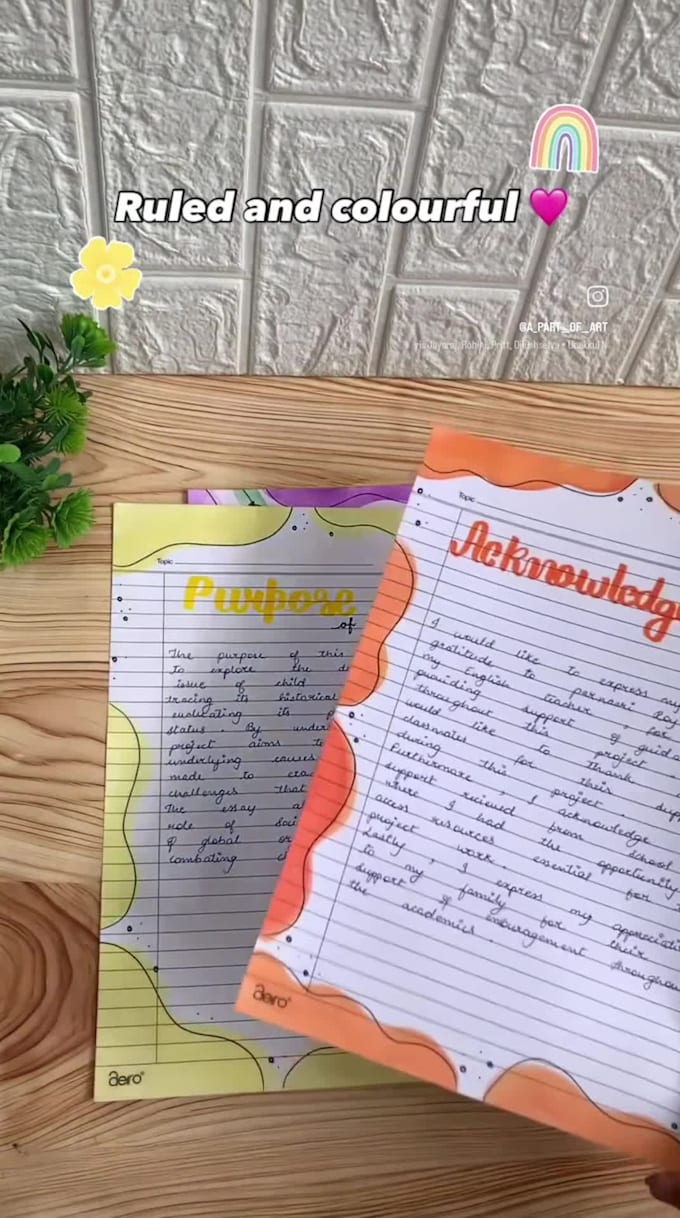 Ruled and colourful
@A_PART_OF_ART
Topic
Purpose
of
The purpose of this
To explore the de
issue of child
tracing its historical
evaluating its p
status . By under
project aims to
underlying causes
made to era
challenges that
The essay a
role of soci
of global or
combating c
aero
Topic
Acknowledg
I would like to express my
gratitude to parnasri Roy
my English teacher for
providing support & guida
throughout this project
would like to thank
classmates for their supp
during this project .
Furthermore , I acknowledge
support recieved from school
where I had the opportunity
access resources essential for
project work
Lastly , I express my appreciati
to my family for their
support & encouragement throughou
the academics .
aero